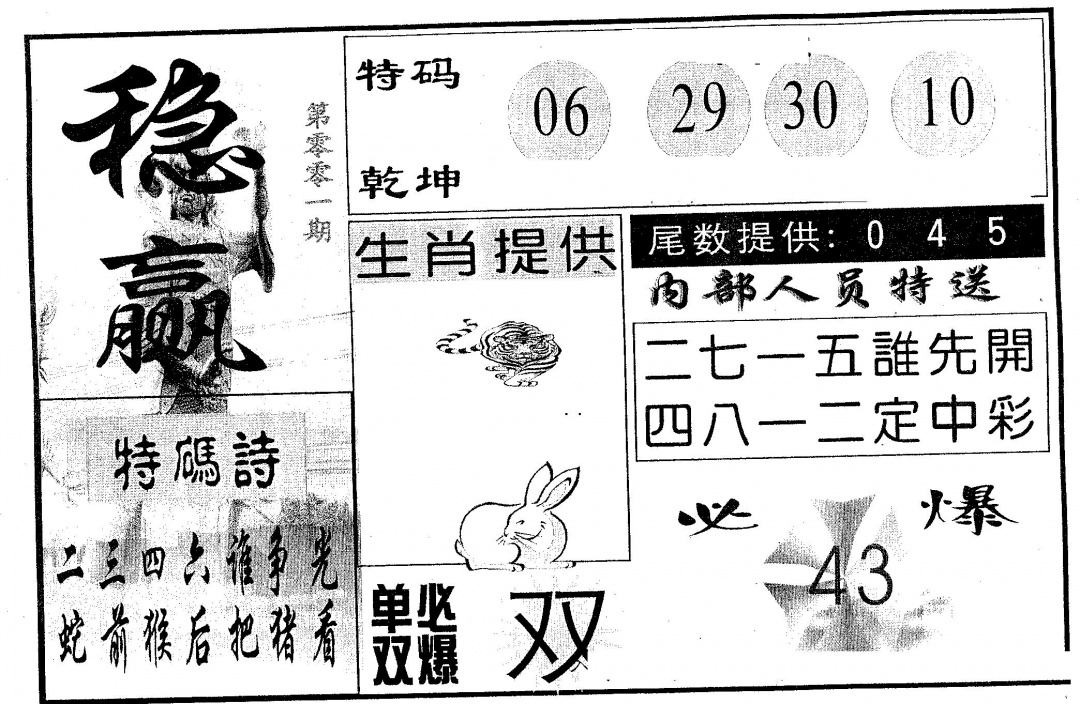 稳赢
第零零一期
特码
乾坤
06 29 30 10
生肖提供
尾数提供: 0 4 5
内部人员特送
二七一五誰先開
四八一二定中彩
特碼詩
二三四六谁争先
蛇前猴后把猪看
单双必爆
双
必爆
43